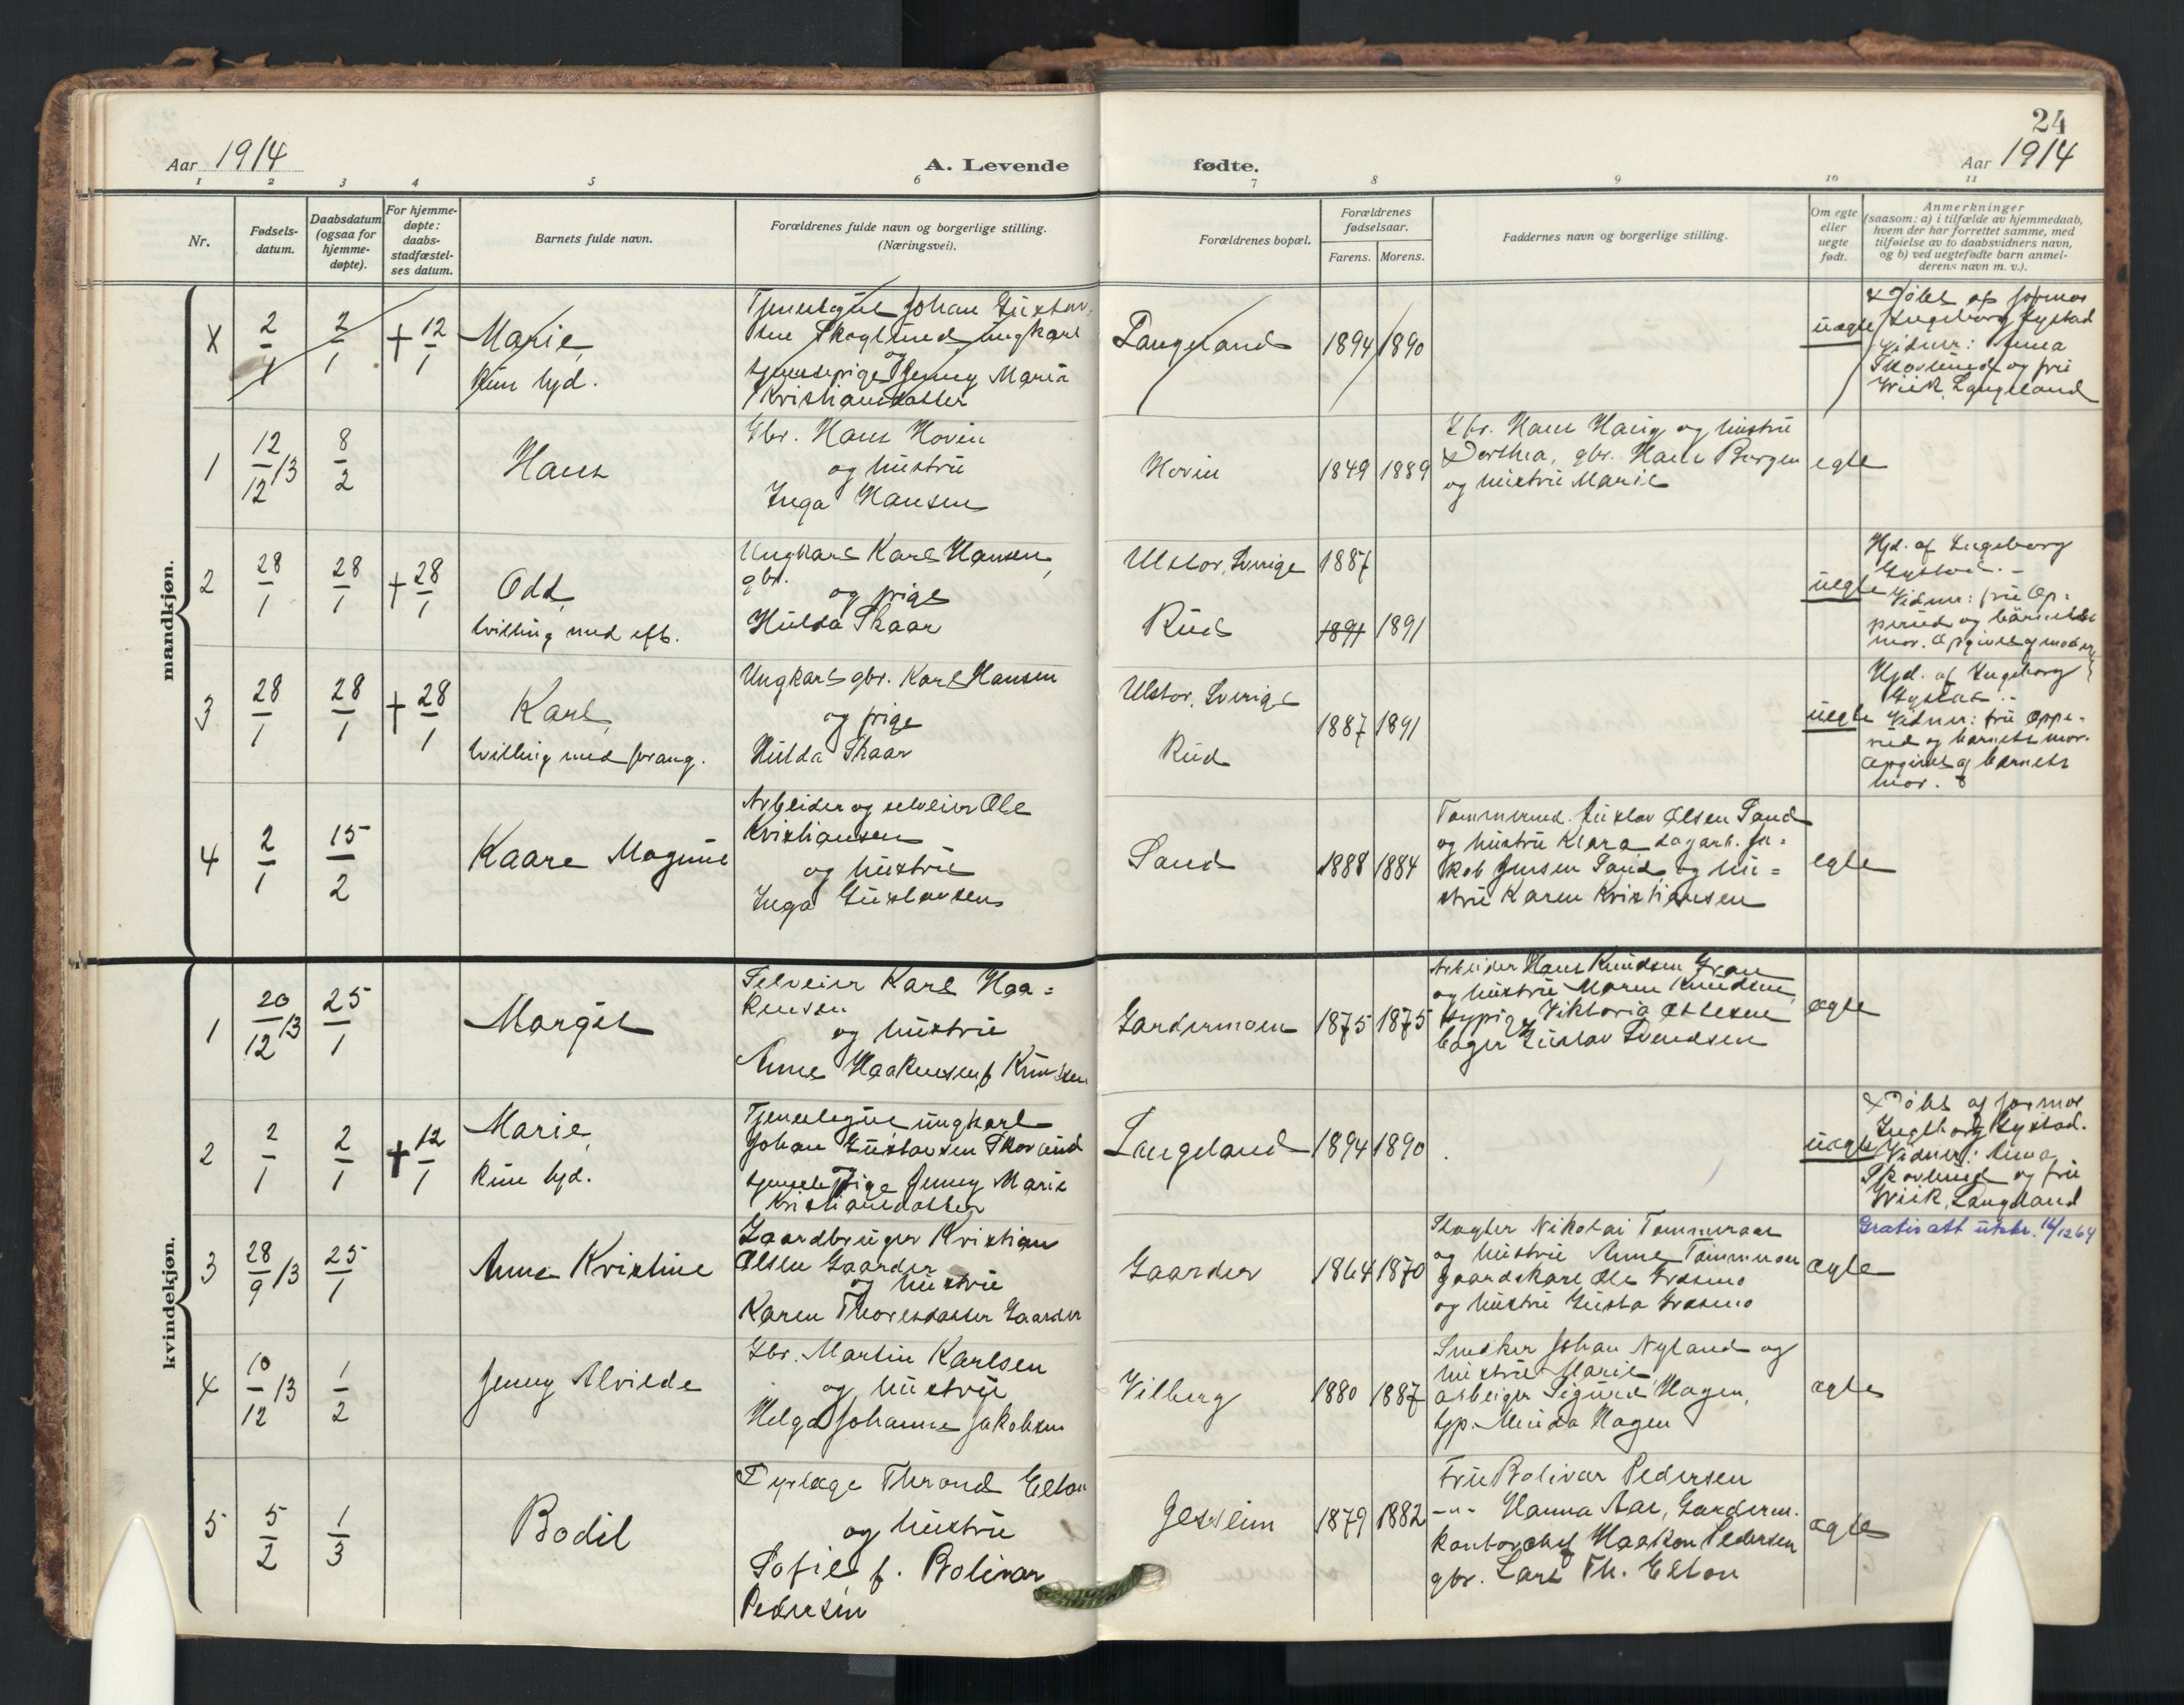 24
Aar 1914
A. Levende
fødte.
Aar 1914
1 2 3 4 5 6 7 8 9 10 11
Nr.
Fødsels-
datum.
Daabsdatum
(ogsaa for
hjemme-
døpte).
For hjemme-
døpte:
daabs-
stadfæstel-
ses datum.
Barnets fulde navn.
Forældrenes fulde navn og borgerlige stilling.
(Næringsvei).
Forældrenes bopæl.
Forældrenes
fødselsaar.
Farens. Morens.
Faddernes navn og borgerlige stilling.
Om egte
eller
uegte
født.
Anmerkninger
(saasom: a) i tilfælde av hjemmedaab,
hvem der har forrettet samme, med
tilføielse av to daabsvidners navn,
og b) ved uegtefødte barn anmel-
derens navn m. v.).
mandkjøn.
X 2/1 2/1 + 12/1
Marie,
Kun hjd.
Johan Gustav
sen ungkarl
og
Jenny Marie
Kristiansdatter
Langeland
1894 1890
uægte
Døbt af jormor
Ingeborg Lystad
Vidner: Anna
Skovlund og fru
Wiik, Langeland
1 12/12 13 8/2
Hans
Gbr. Hans Hovin
og hustru
Inga Hansen
Hovin
1849 1889
Gbr. Hans Haug og hustru
Dorthea, gbr. Hans Bergen
og hustru Marie
egte
2 28/1 28/1 + 28/1
Odd,
tvilling med eft.
Ungkarl Karl Hansen,
gbr.
og pige
Hulda Skaar
Ulstor, Sverige
Rud
1887
1891 1891
uegte
Hjd. af Ingeborg
Lystad. -
Vidner: fru Op-
perud og barnets
mor. Opgives af moder
3 28/1 28/1 + 28/1
Karl,
tvilling med forang.
Ungkarl gbr. Karl Hansen
og pige
Hulda Skaar
Ulstor, Sverige
Rud
1887 1891
uegte
Hjd. af Ingeborg
Lystad. -
Vidner: fru Oppe-
rud og barnets mor.
Opgives af barnets
mor.
4 2/1 15/2
Kaare Magnus
Arbeider og selveier Ole
Kristiansen
og hustru
Inga Gustavsen
Sand
1888 1884
Tømmermd. Gustav Olsen Sand
og hustru Klara dagarb. Ja-
kob Jensen Sand og hu-
stru Karen Kristiansen
egte
kvindekjøn.
1 20/12 13 25/1
Margit
Selveier Karl Haa-
kensen
og hustru
Anne Haakensen f. Knudsen
Gardermoen
1875 1875
Arbeider Hans Knudsen Gran
og hustru Maren Knudsen,
Viktoria Ottesen
bager Gustav Svendsen
ægte
2 2/1 2/1 + 12/1
Marie,
Kun hjd.
ungkarl
Johan Gustavsen Skovlund
Jenny Marie
Kristiansdatter
Langeland
1894 1890
uægte
Døbt af jormor
Ingeborg Lystad.
Vidner: Anna
Skovlund og fru
Wiik, Langeland
3 28/9 13 25/1
Anna Kristine
Gaardbruger Kristian
Olsen Gaarder
og hustru
Karen Thoresdatter Gaarder
Gaarder
1864 1870
Slagter Nikolai Tømmeraas
og hustru Anne Tømmeraas
gaardskarl Ole Græsmo
og hustru Gusta Græsmo
ægte
Gratis att utskr. 16/12 64
4 10/12 13 1/2
Jenny Alvilde
Gbr. Martin Karlsen
og hustru
Helga Johanne Jakobsen
Vilberg
1880 1887
Snedker Johan Nyland og
hustru Marie,
arbeider Sigurd Hagen,
typ. Minda Hagen
ægte
5 5/2 1/3
Bodil
Dyrlæge Thrond Elton
og hustru
Sofie f. Bolivar
Pedersen
Jessheim
1879 1882
Fru Bolivar Pedersen
-"- Hanna Aas, Garderm.
kontorchef Haakon Pedersen
gbr. Lars Th. Elton
ægte